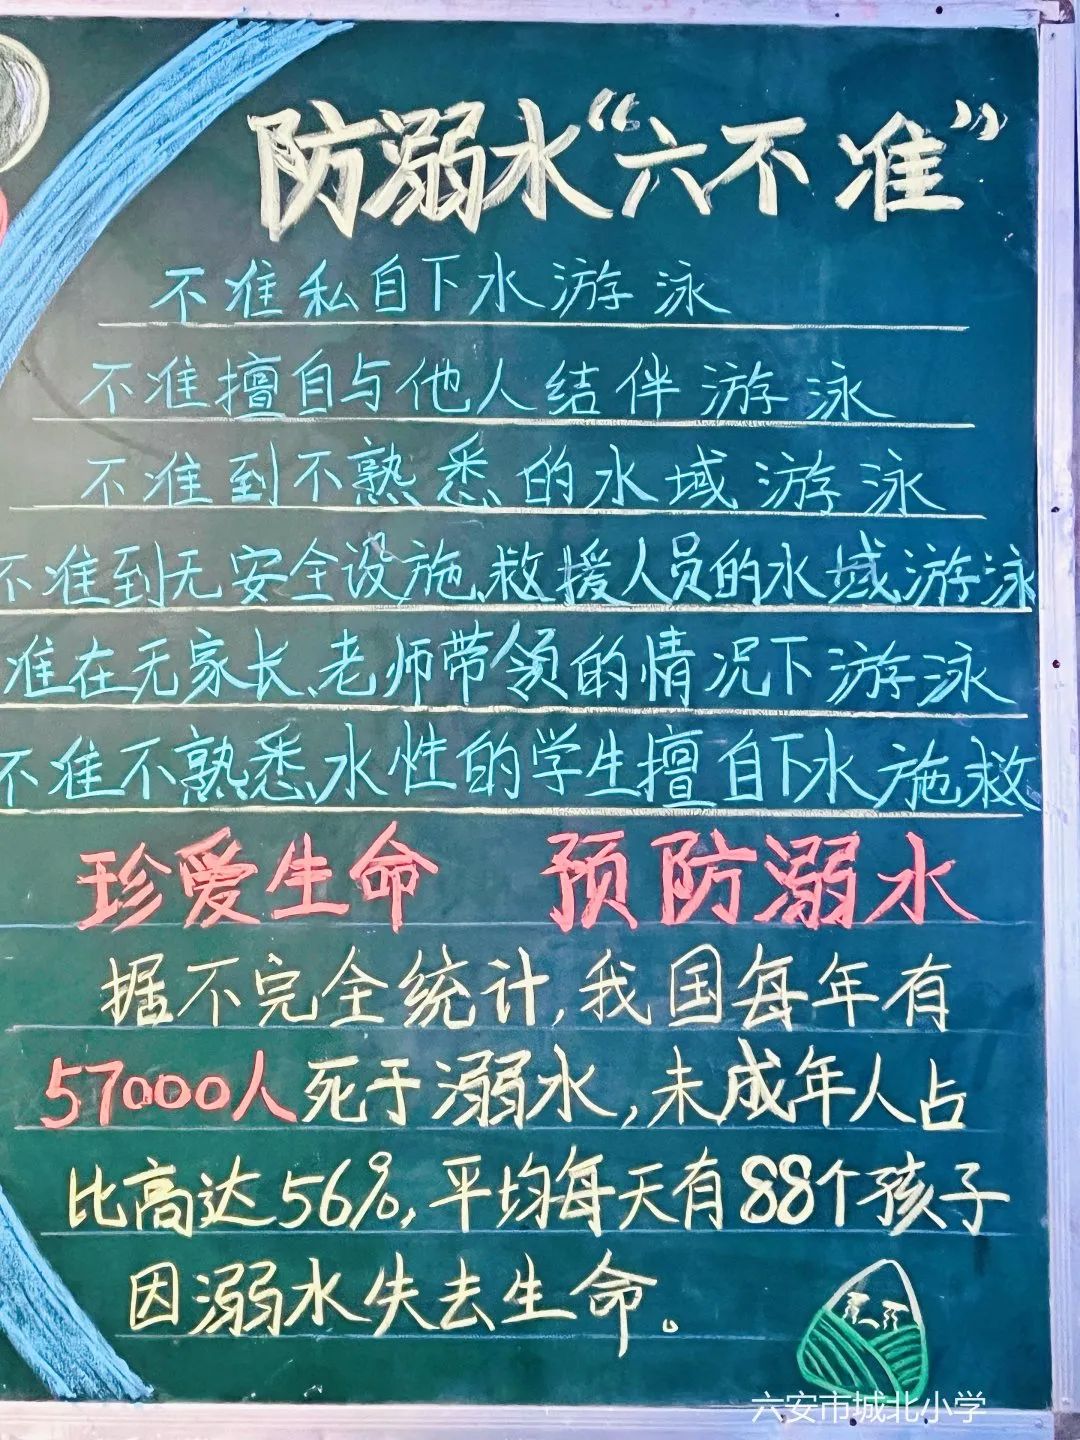 防溺水“六不准”
不准私自下水游泳
不准擅自与他人结伴游泳
不准到不熟悉的水域游泳
不准到无安全设施、救援人员的水域游泳
准在无家长、老师带领的情况下游泳
不准不熟悉水性的学生擅自下水施救
珍爱生命 预防溺水
据不完全统计,我国每年有
57000人死于溺水,未成年人占
比高达56%,平均每天有88个孩子
因溺水失去生命。
六安市城北小学